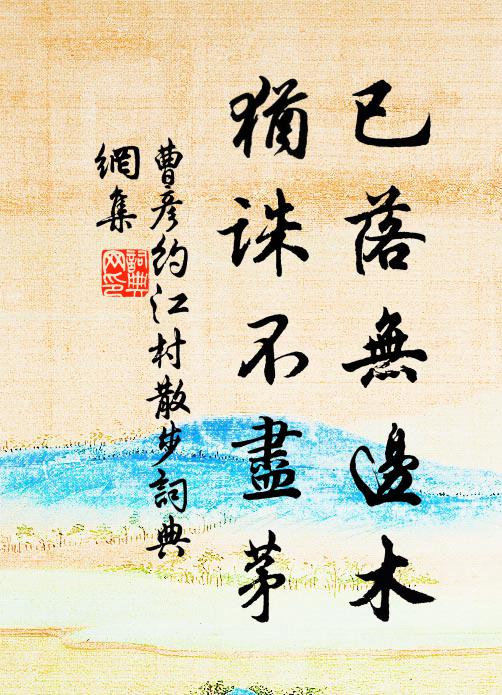 已落無邊木
猶誅不盡茅
曹彦約江村散步詞典
網集
詞典
网印